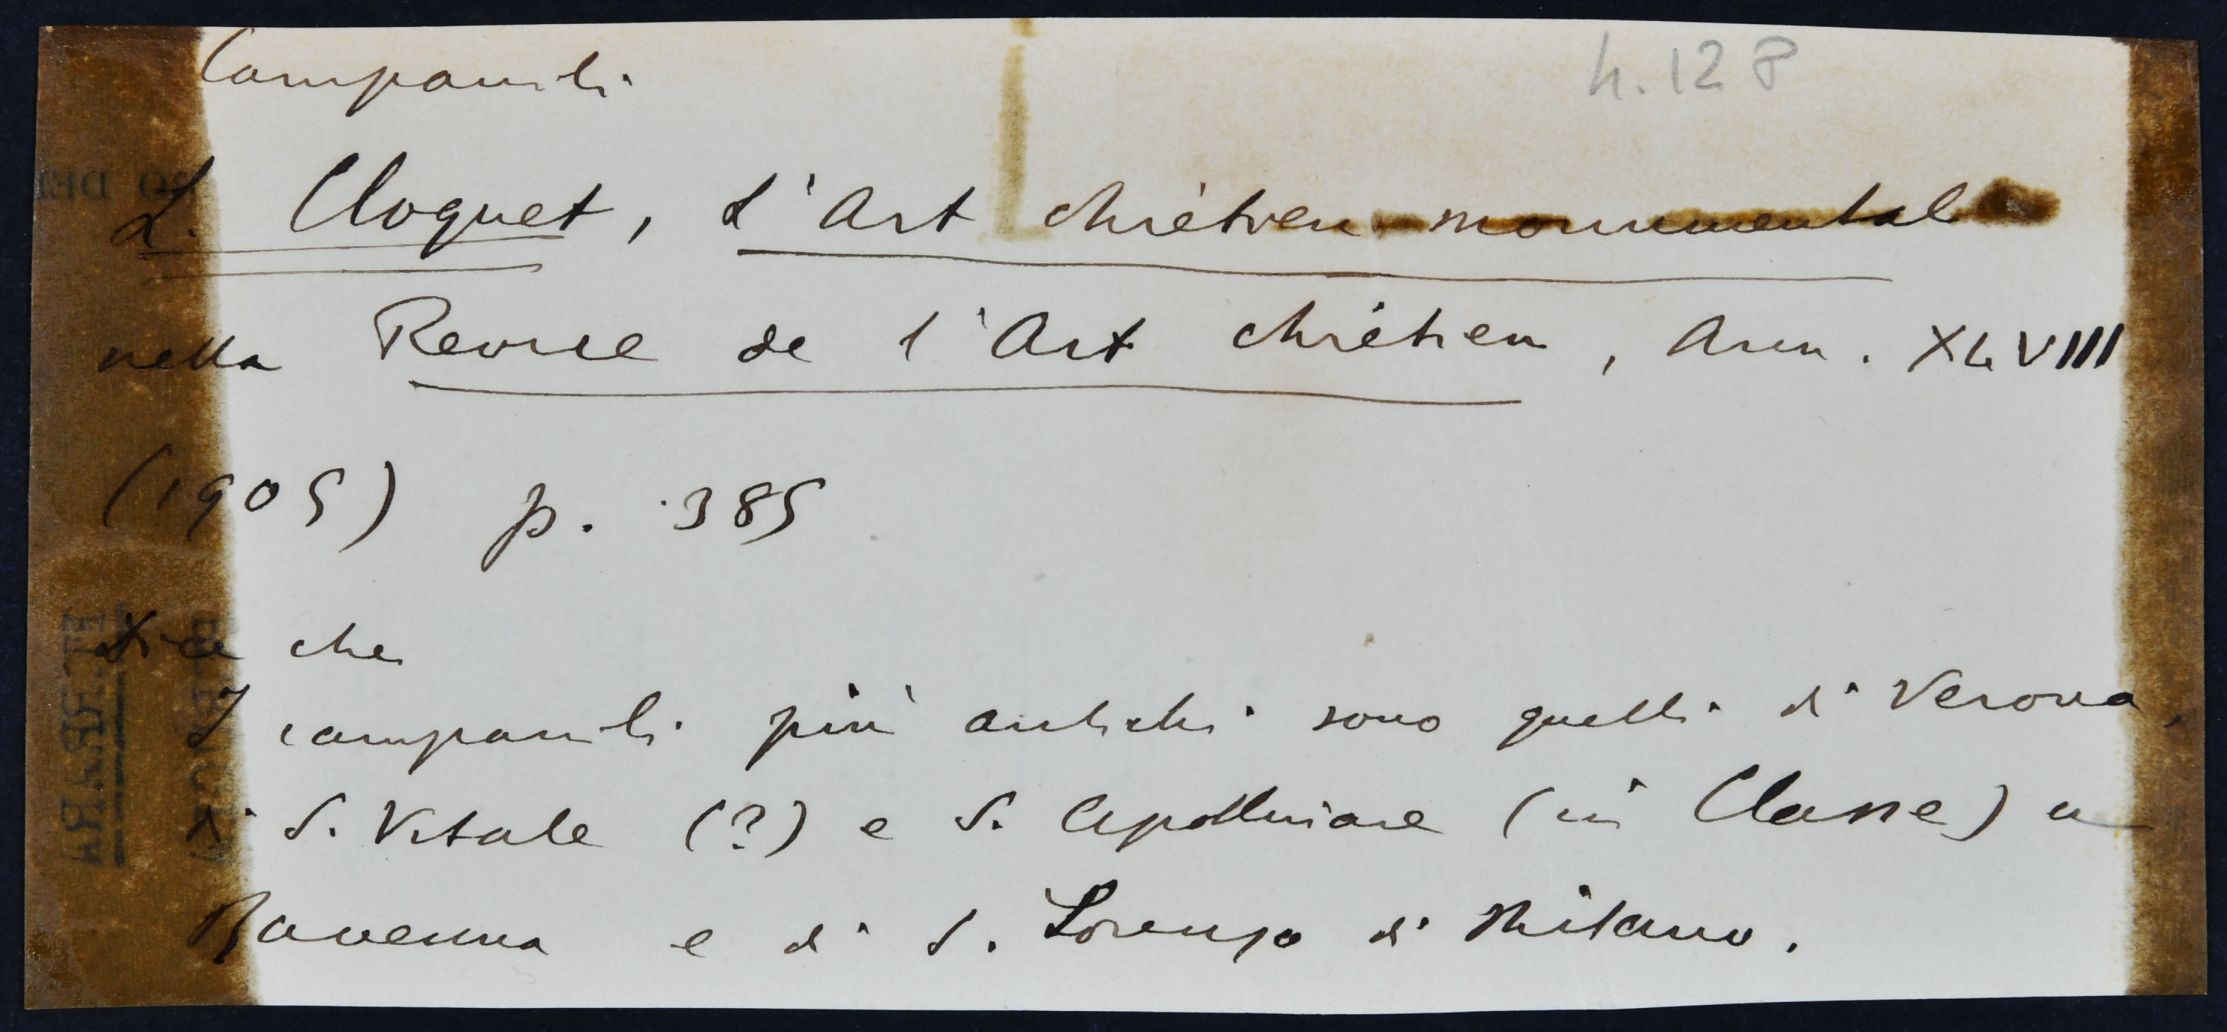 Campanili
h. 128
L. Cloquet, L'Art chrétien monumental
nella Revue de l'Art chrétien, Ann. XLVIII
(1905) p. 385
Dice che
I campanili più antichi sono quelli di Verona,
di S. Vitale (?) e S. Apollinare (in Classe) a
Ravenna e di S. Lorenzo di Milano.